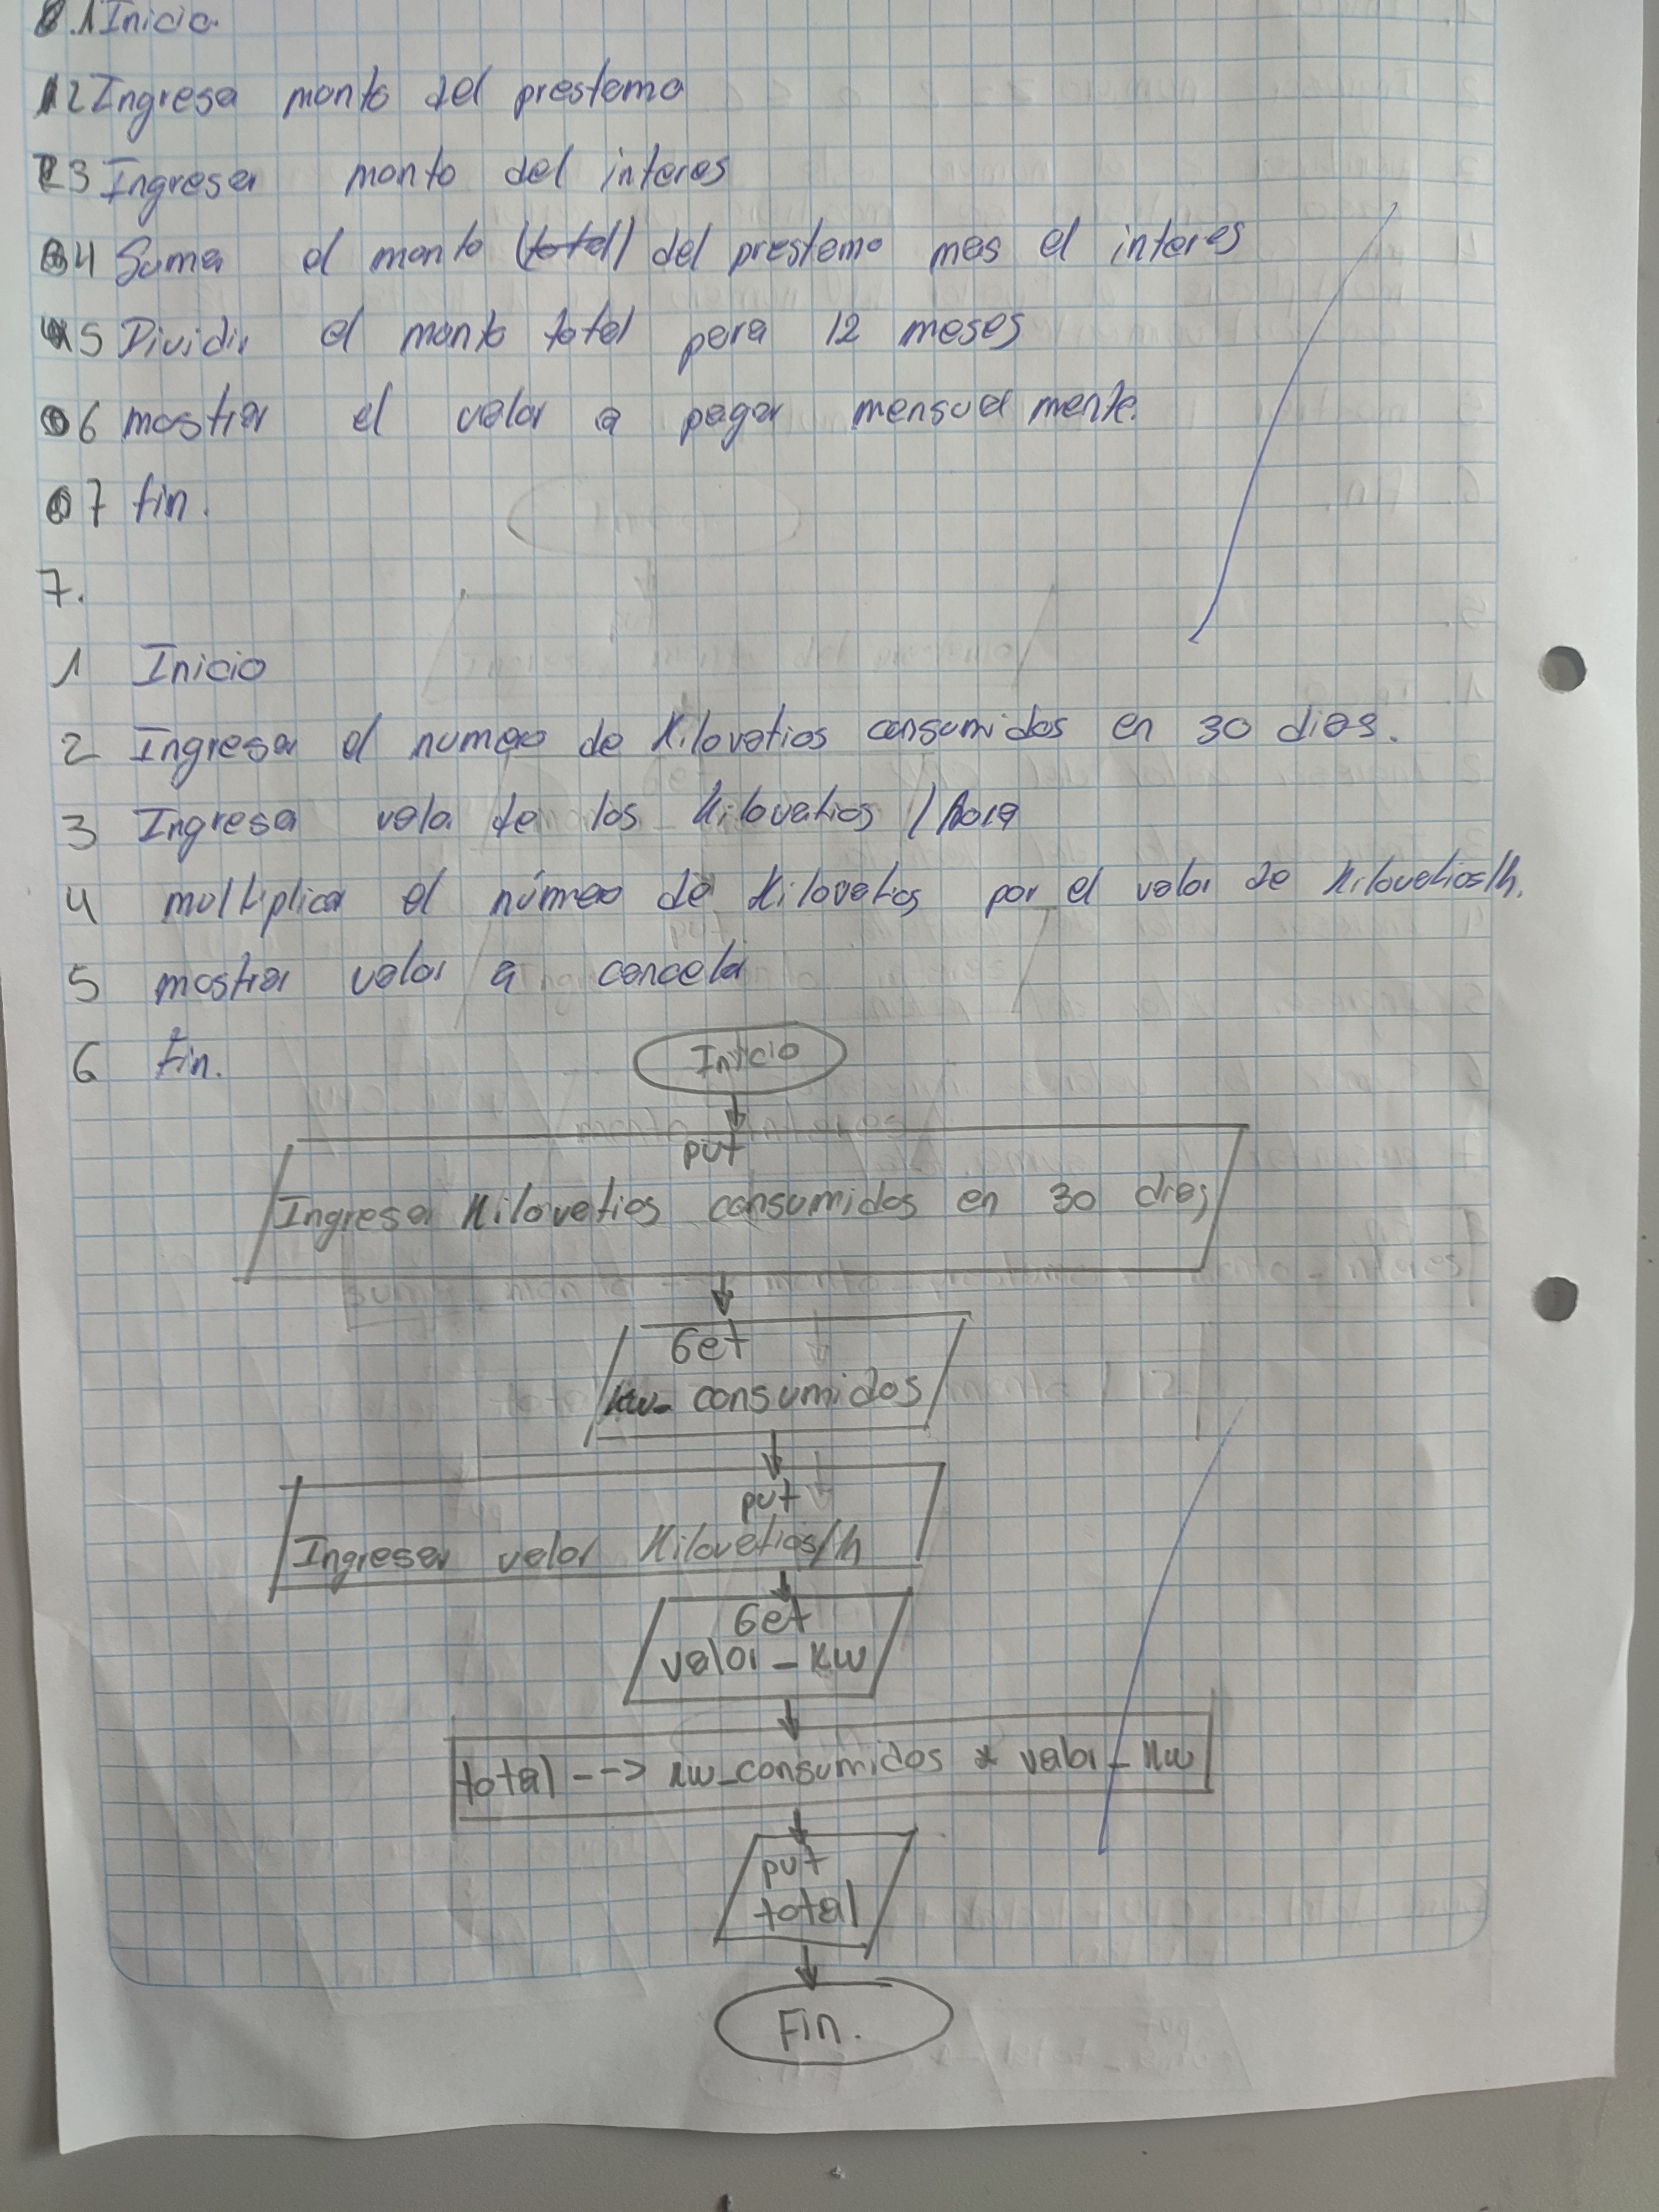 6.1 Inicio.
2 Ingresa monto del prestamo
3 Ingresar monto del interes
4 Sumar el monto (total) del prestamo mas el interes
5 Dividir el monto total para 12 meses
6 mostrar el valor a pagar mensual mente.
7 fin.
7.
1 Inicio
2 Ingresar el numero de Kilovatios consumidos en 30 dias.
3 Ingresar valor de los Kilovatios / hora
4 multiplicar el número de Kilovatios por el valor de Kilovatios/h.
5 mostrar valor a cancelar
6 Fin.
Inicio
put
Ingresar Kilovatios consumidos en 30 dias
Get
kw_consumidos
put
Ingresar valor Kilovatios/h
Get
valor_kw
total --> kw_consumidos * valor_kw
put
total
Fin.